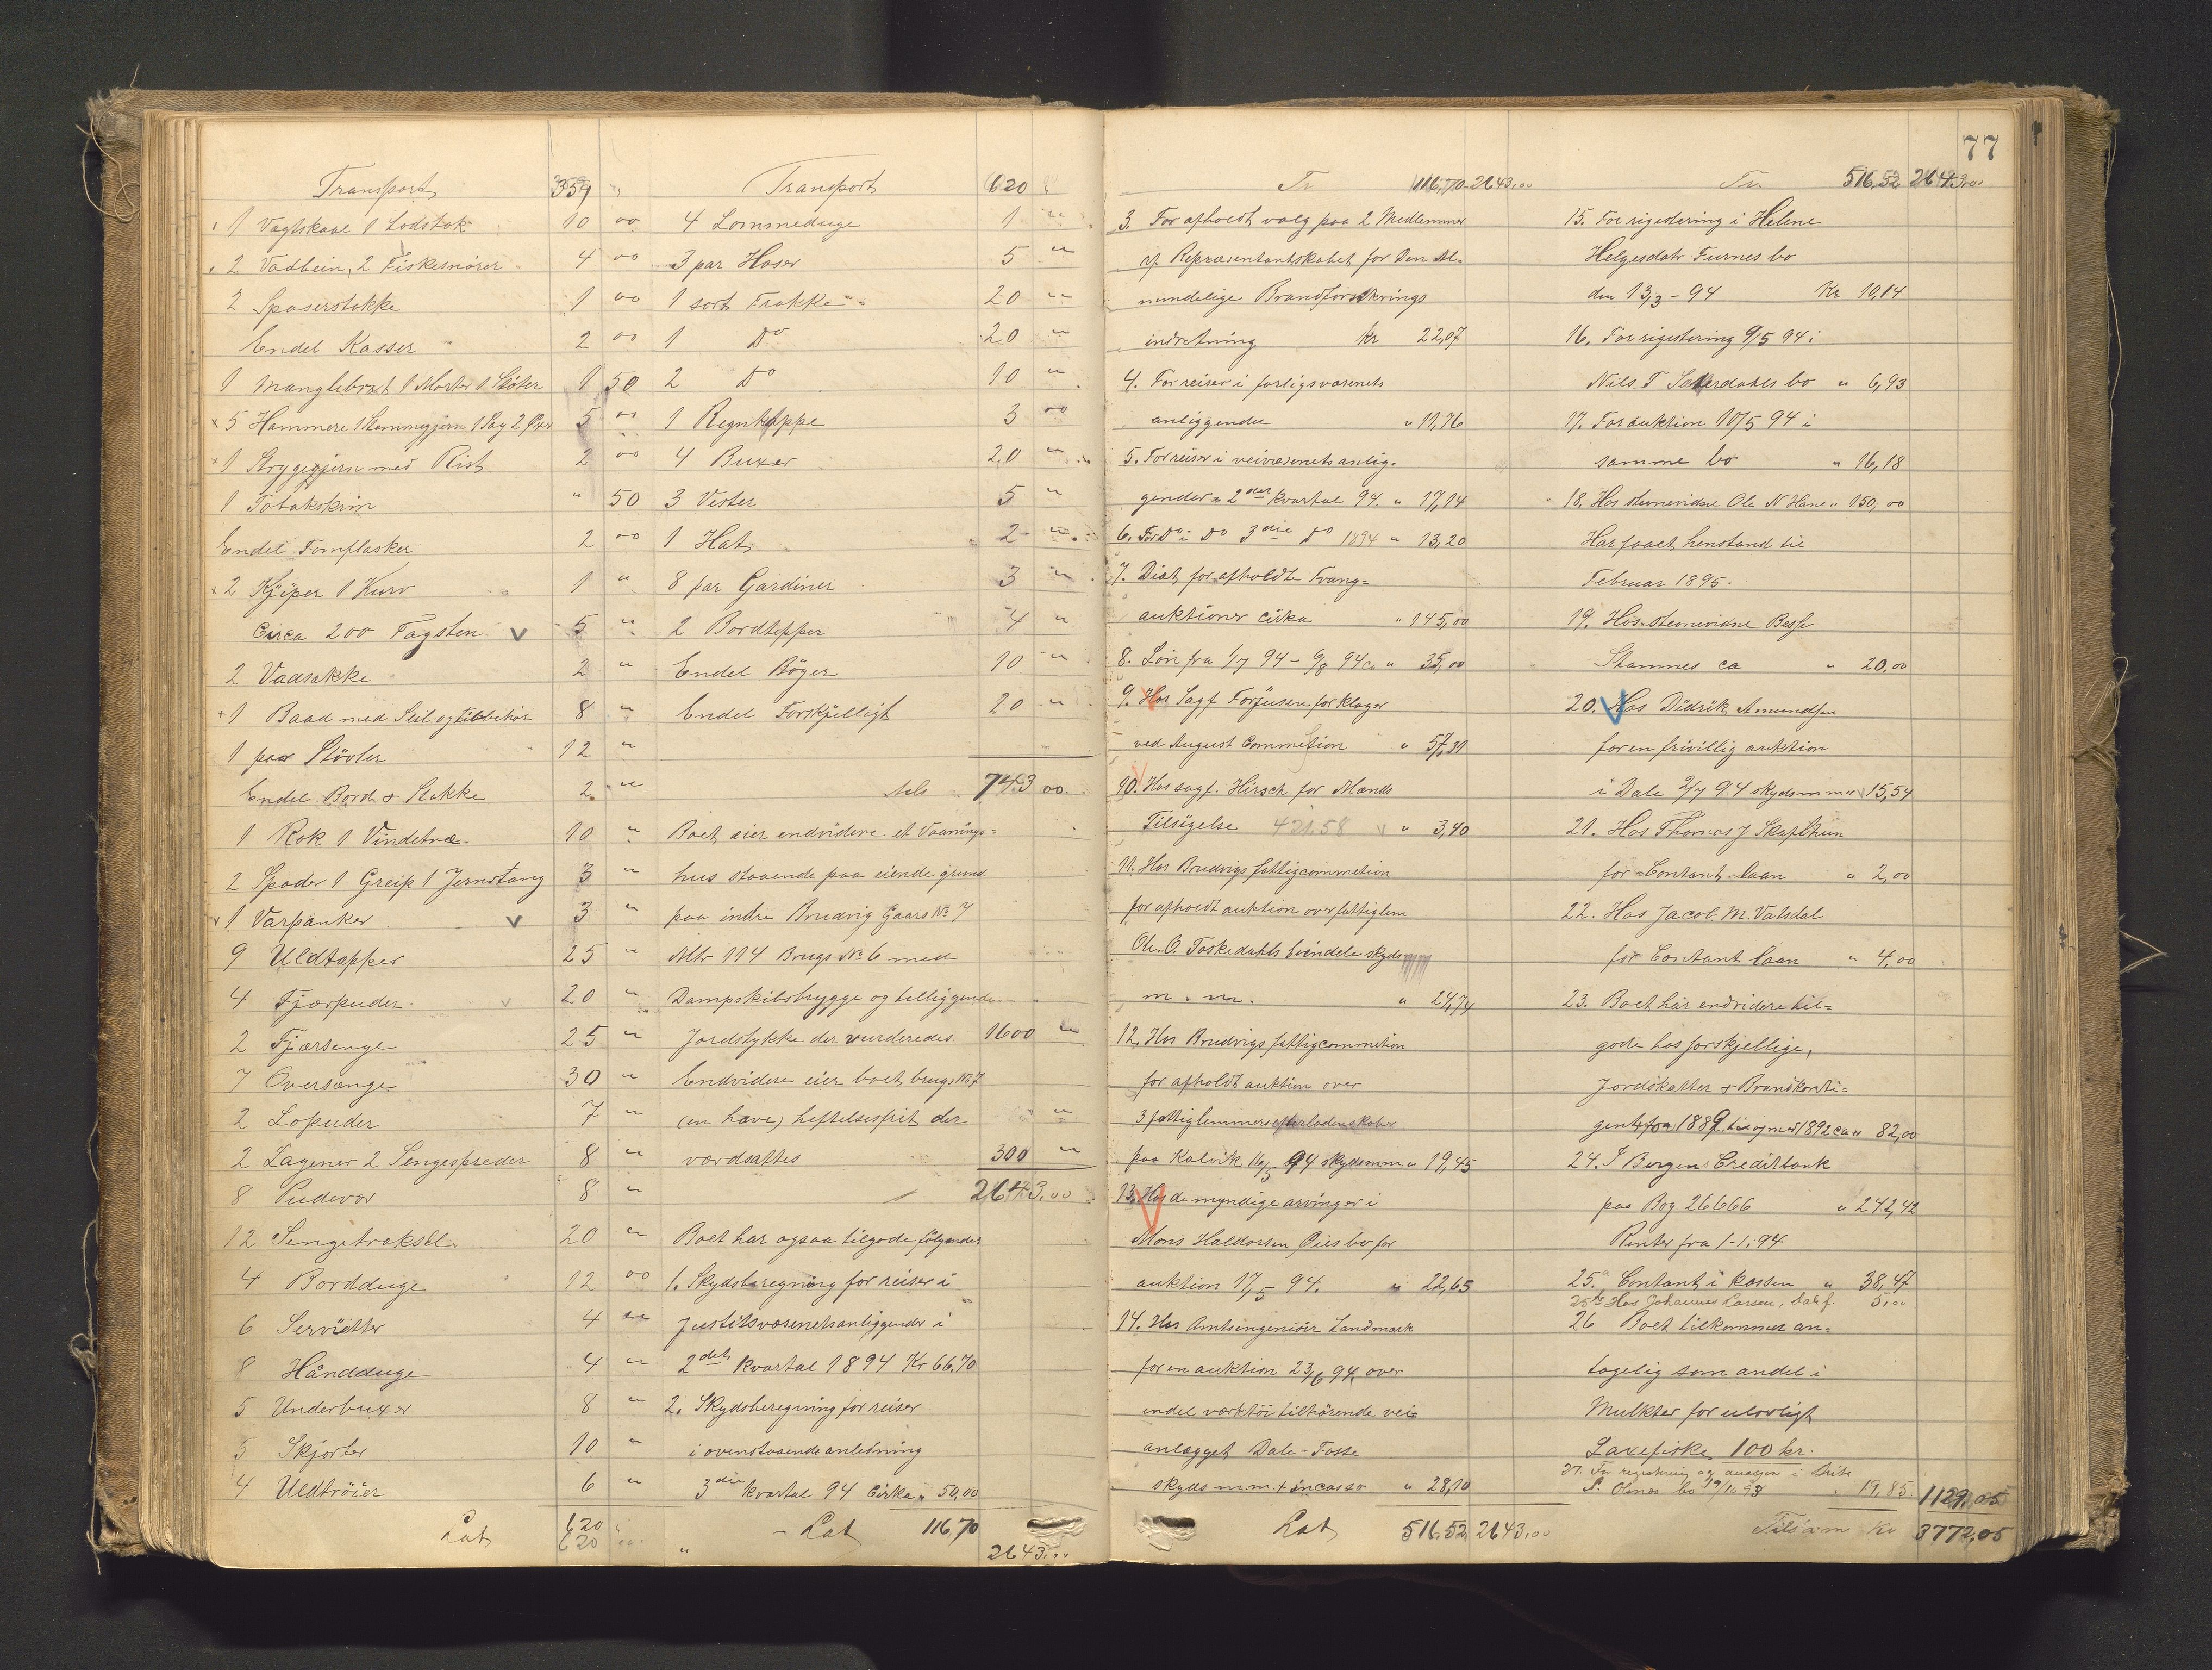 Transport 359 "
1 Vagtskaal 1 Lodstok 10 00
2 Vadbein, 2 Fiskesnörer 4 00
2 Spaserstokke 1 00
Endel Kasser 2 00
1 Manglebræt 1 Morter 1 Stöter 1 50
5 Hammere 1 Stemmejern 1 Sag 2 Öxer 5 00
1 Strygejern med Rist 2 00
1 Tobakskrin " 50
Endel Tomflasker 2 00
2 Kjiper 1 Kurv 1 "
Circa 200 Tagsten 5 "
2 Vadsække 2 "
1 Baad med Seil og tilbehør 8 "
1 par Stövler 12 "
Endel Bord & Stokke 2 "
1 Rok 1 Vindetræ 10 "
2 Spader 1 Greip 1 Jernstang 3 "
1 Varpanker 3 "
9 Uldtæpper 25 "
4 Fjærpuder 20 "
2 Fjærsenge 25 "
7 Oversænge 30 "
2 Lopuder 7 "
2 Lagener 2 Sengespreder 8 "
8 Pudevar 8 "
12 Singetræksel 20 "
4 Bordduge 12 00
6 Servietter 4 "
8 Håndduge 4 "
5 Underbuxer 8 "
5 Skjorter 10 "
4 Uldtröier 6 "
Lat 620 "
620
Transport 620 "
4 Lommeduge 1 "
3 par Hoser 5 "
1 sort Frakke 20 "
1 Do 20 "
2 Do 10 "
1 Regnkappe 3 00
4 Buxer 20 "
3 Vester 5 "
1 Hat 2 "
8 par Gardiner 3 "
2 Bordtepper 4 "
Endel Böger 10 "
Endel Forskjelligt 20 "
743 00
Boet eier endvidere et Vaanings=
hus staaende paa eiende grund
paa indre Brudvig Gaards No 7
Mtr 114 Brugs No 6 med
Dampskibsbrygge og belliggende
Jordstykke der vurderedes. 1600 "
Endvidere eier boet brugs No 7
(en have) heftelsesfrit der "
værdsattes 300 "
2643,00
Boet har ogsaa tilgode følgende
1. Skydsberegning for reiser i
Justitsvæsenets anliggender i
2det kvartal 1894 Kr 66,70
2. Skydsberegning for reiser
i ovenstaaende anledning
3die kvartal 94 Cirka " 50,00
Lat 116,70
2643,00
77
Tr 116,70 2643,00
3. For afholdt valg paa 2 Medlemmer
af Repræsentantskabet for Den Al=
mindelige Brandforsikrings
indretning kr 22,07
4. For reiser i forligsvæsenets
anliggender " 11,76
5. For reiser i veivæsenets anlig=
gender " 2det kvartal 94. " 17,14
6. For Do i Do 3die Do 1894 " 13,20
7. Diæt for afholdte Tvang=
auktioner cirka " 145,00
8. Lön fra 1/7 94 - 6/8 94 ca " 35,00
9. Hos Sagf. Torjusen for klager
ved August Commetion " 57,31
10. Hos sagf. Hirsch for Mænds
Tilsigelse 421.58 " 3,40
11. Hos Brudvigs fattigcommetion
for afholdt auktion over fattiglem
Ole O. Toskedahls Eiendele skyds
m. m. " 24,74
12. Hos Brudvigs fattigcommetion
for afholdt auktion over
3 fattiglemmers efterladenskaber
paa Kalvik 16/5 94 skyds m m " 19,45
13. Hos de myndige arvinger i
Mons Haldorsen Öies bo for
auktion 17/5 - 94. " 22,65
14. Hos Amtsingeniör Landmark
for en auktion 23/6 94 over
endel værktöi tilhörende vei=
anlægget Dale - Fosse
skyds m m + incasso " 28,10
Lat 516,52 2643,00
Tr. 516,52 2643,00
15. For rigistering i Helene
Helgesdatr Furnes bo
den 13/3 - 94 Kr 10,14
16. For rigistering 9/5 94 i
Nils T Sæterdahls bo " 6,93
17. For auktion 10/5 94 i
samme bo " 16,18
18. Hos stevnevidne Ole N Hane " 150,00
Har faaet henstand til
Februar 1895.
19. Hos stevnevidne
Stamnes ca " 20,00
20. Hos Didrik Amundsen
for en frivillig auktion
i Dale 2/7 94 skyds m m " 15,54
21. Hos Thomas J Skafthun
for Contant laan " 2,00
22. Hos Jacob M. Vatsdal
for Contant laan " 4,00
23. Boet har endvidere til=
gode hos forskjellige,
Jordskatter & Brandkonti=
gent fra 1889 til og med 1892 ca " 82,00
24. I Bergens Creditbank
paa Bog 26666 " 242,42
Renter fra 1-1-94
25.a Contant i kassen " 38,47
25b Hos Johannes Larsen, Dalef. 5,00
26 Boet tilkommer an=
tagelig som andel i
Mulkter for ulovligt
Laxefiske 100 kr.
27. For registrering og auksjon i
S. Olsnes bo 19/10 93 " 19,85. 1129,05
Tilsam Kr 3772,05